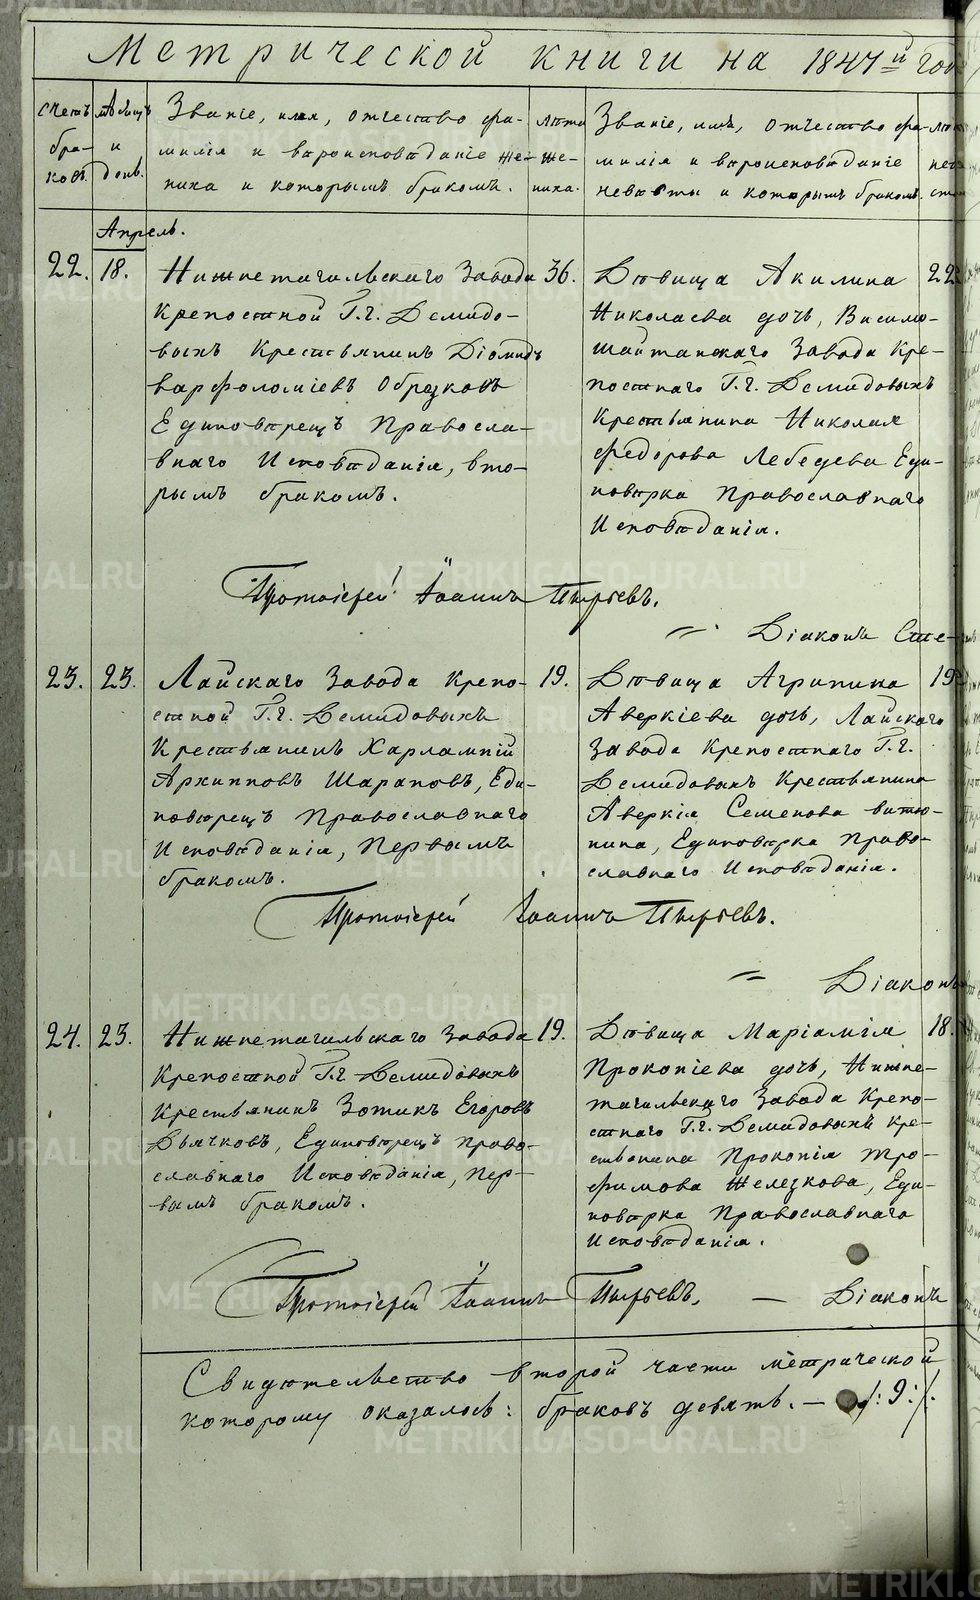 Метрической книги на 1847й год
Счетъ бра- ковъ.
мѣсяцъ и день.
Званіе, имя, отчество фа-
милія и вѣроисповѣданіе же-
ниха и которымъ бракомъ.
лѣта же- ниха.
Званіе, имя, отчество фа-
милія и вѣроисповѣданіе
невѣсты и которымъ бракомъ.
Апрель.
22. 18.
Нижнетагильскаго Завода 36.
Крепостной Г.г. Демидо-
выхъ Крестьянинъ Діомидъ
варфоломіевъ Обрезковъ
Единоверецъ Правосла-
внаго Исповѣданія, вто-
рымъ бракомъ.
Дѣвица Акилина 22
Николаева дочь, Висимо-
шайтанскаго Завода Кре-
постнаго Г.г. Демидовыхъ
Крестьянина Николая
Федорова Лебедева Еди-
новѣрка Православнаго
Исповѣданія.
Протоіерей Іоаннъ Пырьевъ.
Діаконъ Сте-
23. 23.
Лайскаго Завода Крепо- 19.
стной Г.г. Демидовыхъ
Крестьянинъ Харлампій
Архипповъ Шараповъ, Еди-
новѣрецъ Православнаго
Исповѣданія, Первымъ
бракомъ.
Дѣвица Агрипина 19
Аверкіева дочь, Лайскаго
Завода Крепостнаго Г.г.
Демидовыхъ Крестьянина
Аверкія Семенова витю-
нина, Единовѣрка Право-
славнаго Исповѣданія.
Протоіерей Іоаннъ Пырьевъ.
Діаконъ
24. 23.
Нижнетагильскаго Завода 19.
Крепостной Г.г. Демидовыхъ
Крестьянинъ Зотикъ Егоровъ
Дьячковъ, Единовѣрецъ Право-
славнаго Исповѣданія, Пер-
вымъ бракомъ.
Дѣвица Маріамія 18.
Прокопіева дочь, Нижне-
тагильскаго Завода Крепо-
стнаго Г.г. Демидовыхъ Кре-
стьянина Прокопія Тро-
фимова Железкова, Еди-
новѣрка Православнаго
Исповѣданія.
Протоіерей Іоаннъ Пырьевъ. — Діаконъ
Свидѣтельство второй части метрической
которому оказалось: браковъ девять. — /:9:/.
METRIKI.GASO-URAL.RU